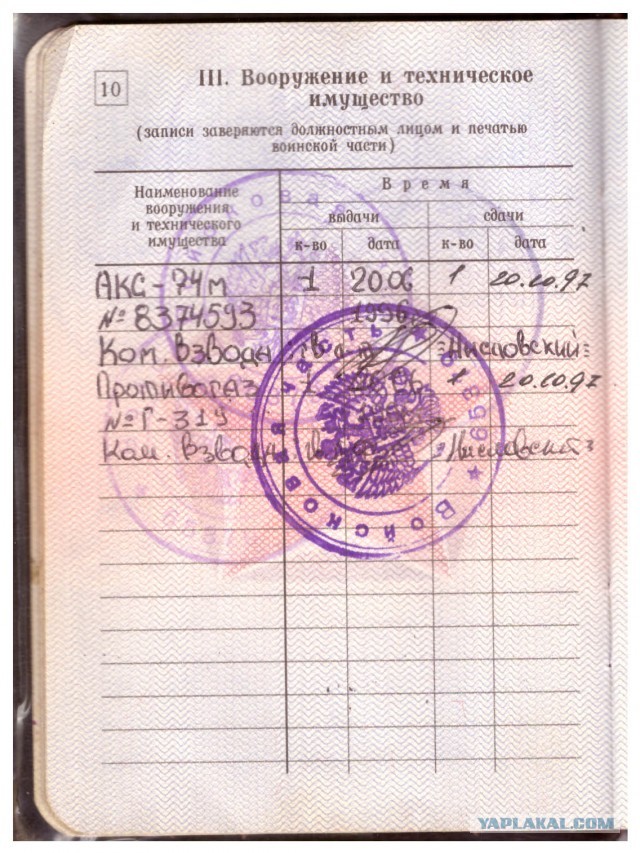 10
III. Вооружение и техническое
имущество
(записи заверяются должностным лицом и печатью
воинской части)
Наименование
вооружения
и технического
имущества
Время
выдачи
сдачи
к-во
дата
к-во
дата
АКС-74м 1 20.06 1 20.10.97
№ 8374593 1996
Ком. Взвода
Противогаз 1 20.10.97
№ Г-
Ком. Взвода
Войсковая часть
YAPLAKAL.COM